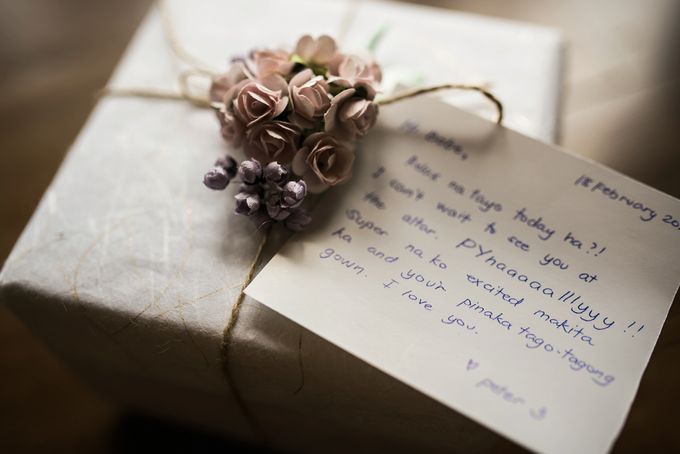 18 February
na tayo today ha?!
I can't wait to see you at
the altar. PYnaaaaalllyyy!!
Super na ko excited makita
ka and your pinaka tago-tagong
gown. I love you.
♥ peter